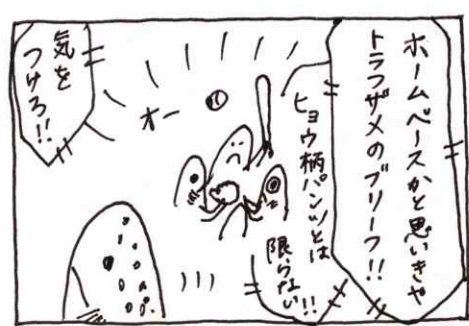 ホームベースかと思いきや
トラフザメのブリーフ!!
ヒョウ柄パンツとは
限らない!!
オー
気を
つけろ!!